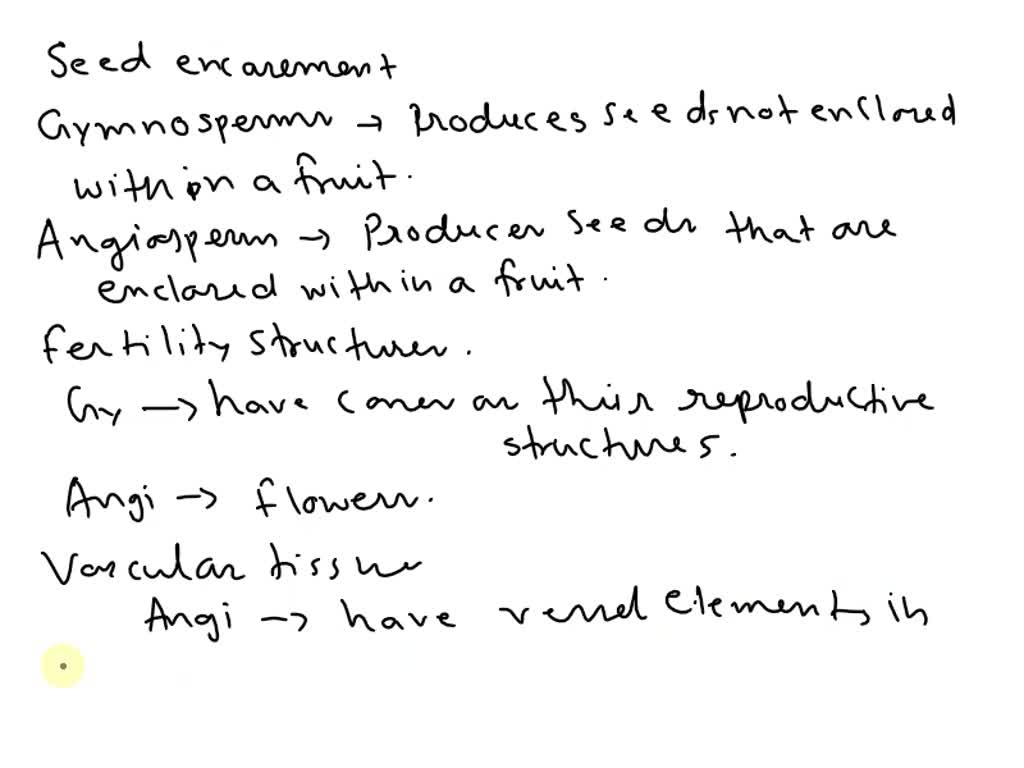 Seed encasement
Gymnosperms → Produces seeds not enclosed
within a fruit.
Angiosperm → Produces seeds that are
enclosed within a fruit.
fertility structures.
Gy → have cones as their reproductive
structures.
Angi → flowers.
Vascular tissue
Angi → have vessel elements in